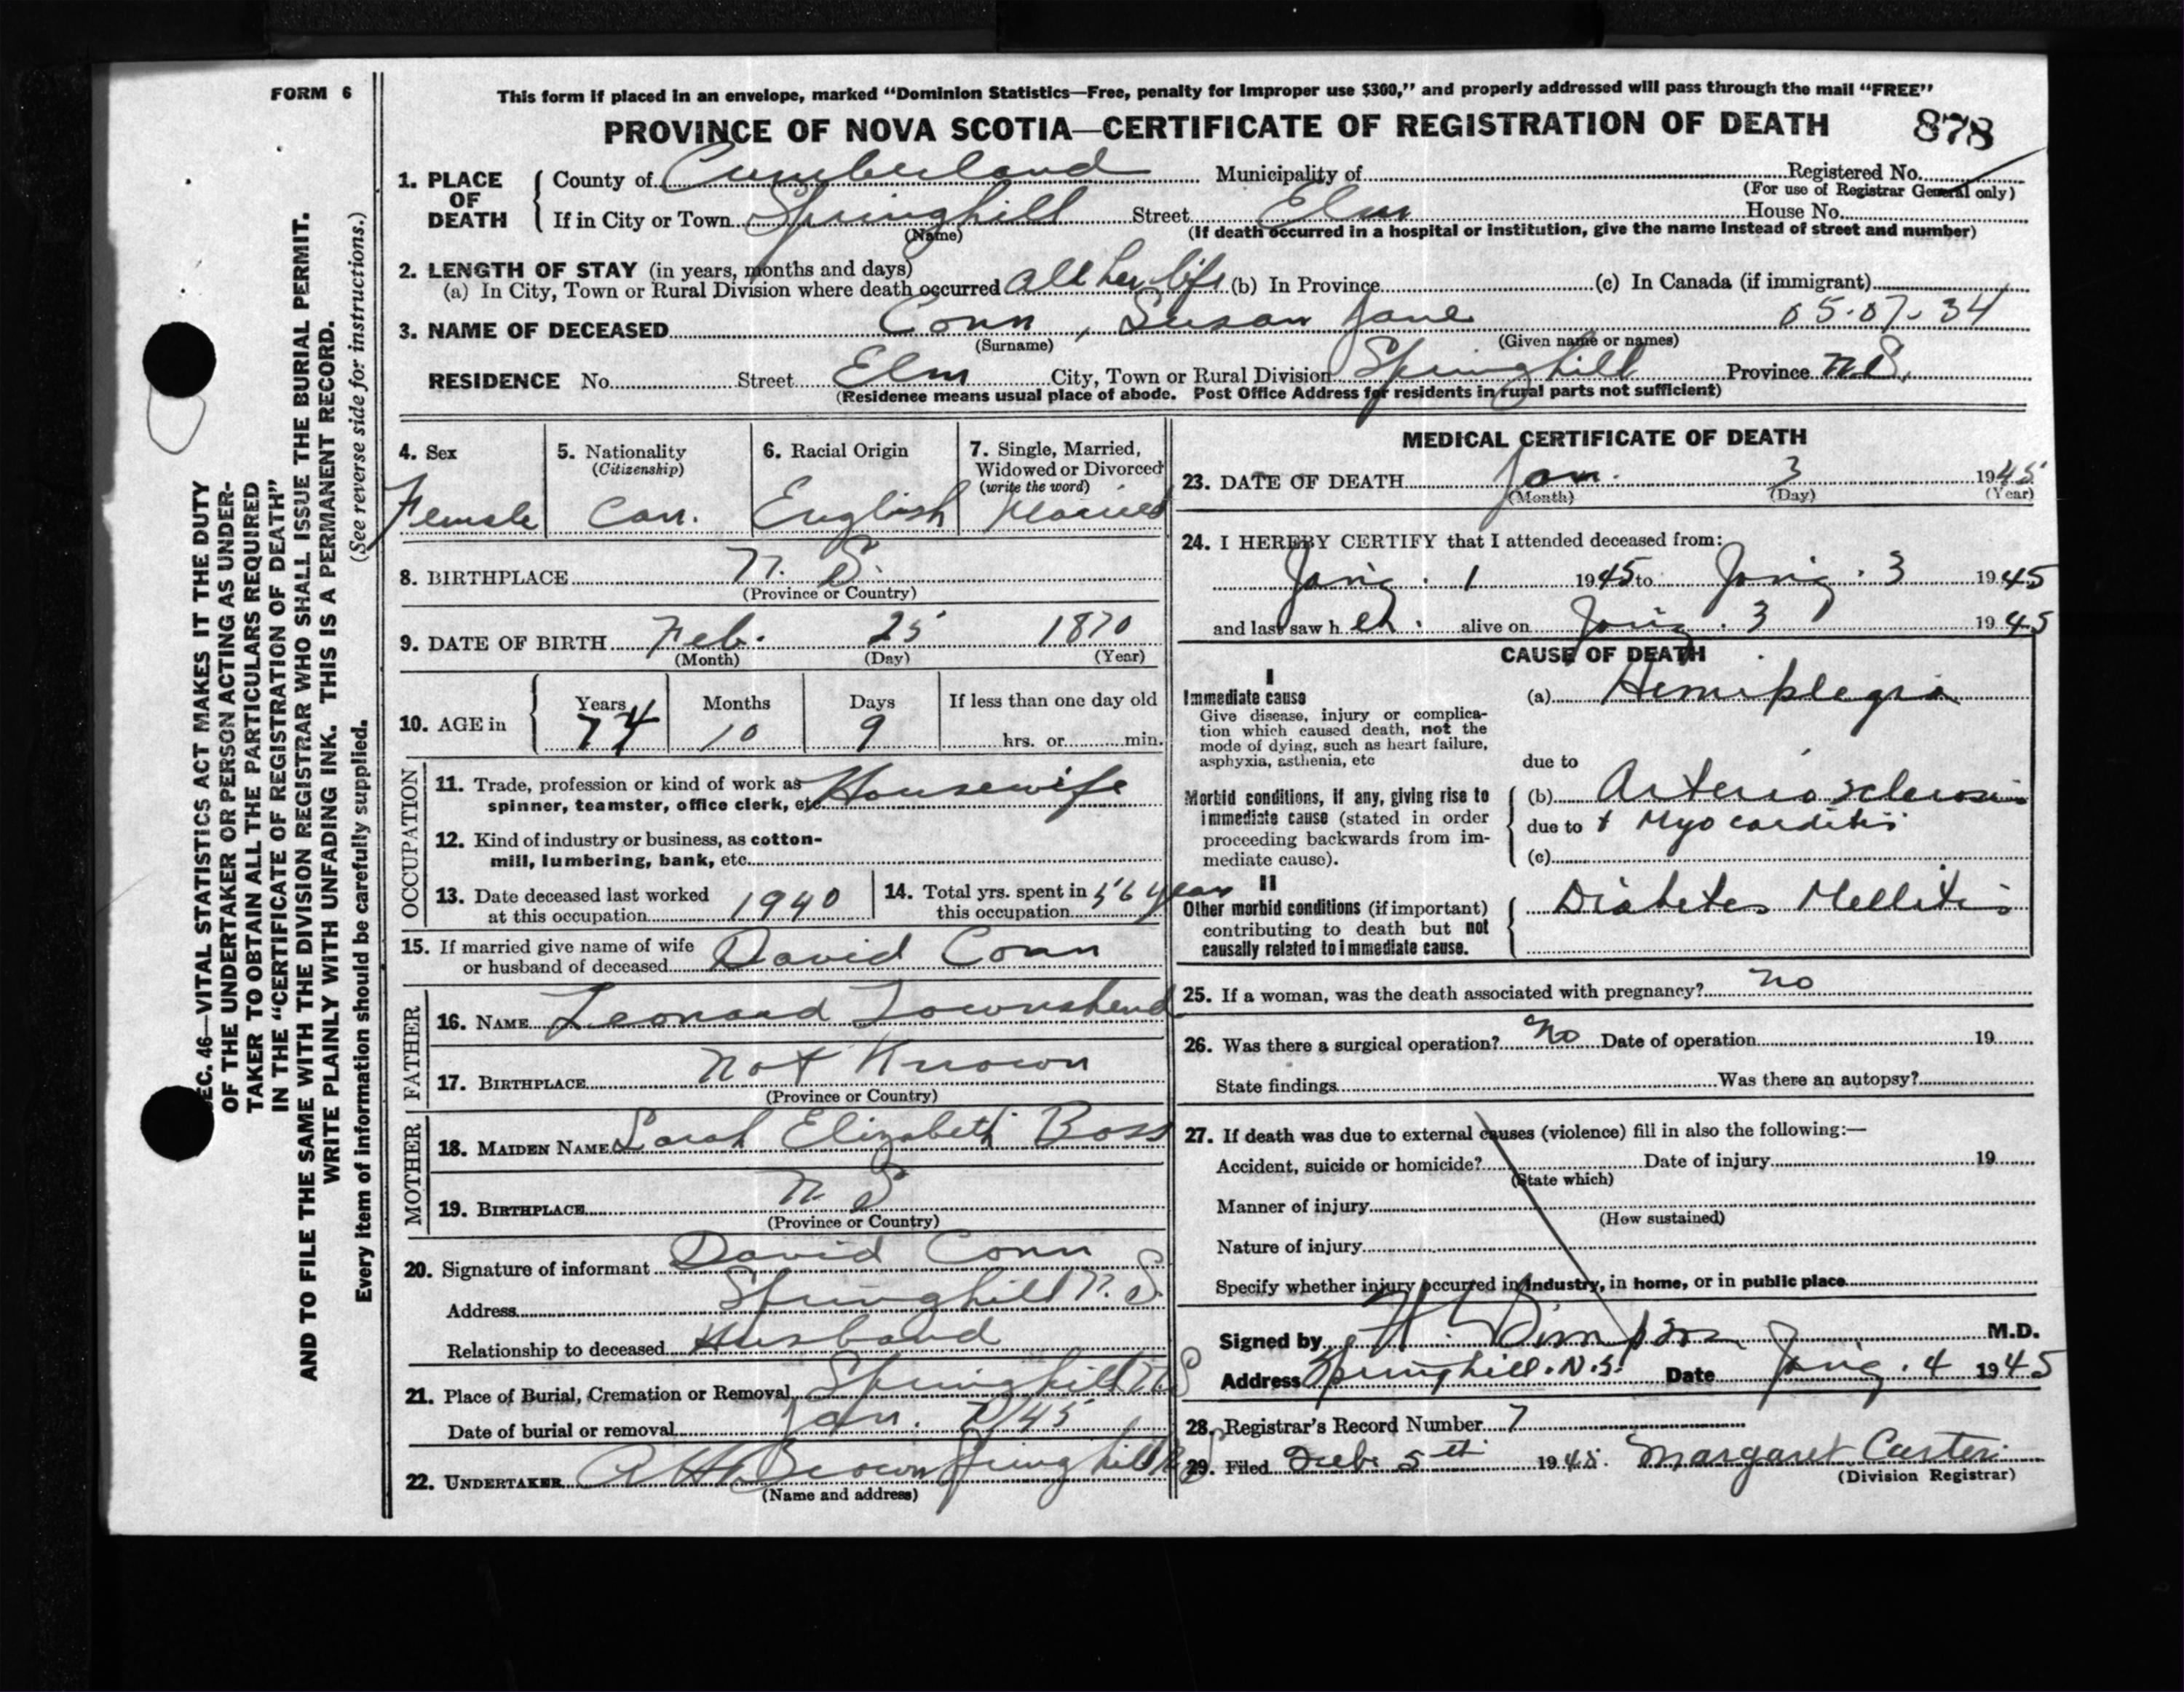 FORM 6
This form if placed in an envelope, marked “Dominion Statistics—Free, penalty for improper use $300,” and properly addressed will pass through the mail “FREE”
PROVINCE OF NOVA SCOTIA—CERTIFICATE OF REGISTRATION OF DEATH 878
1. PLACE OF DEATH
County of Cumberland Municipality of Registered No.
(For use of Registrar General only)
If in City or Town Springhill Street Elm House No.
(Name) (If death occurred in a hospital or institution, give the name instead of street and number)
2. LENGTH OF STAY (in years, months and days)
(a) In City, Town or Rural Division where death occurred all her life (b) In Province (c) In Canada (if immigrant)
05-07-34
3. NAME OF DECEASED Conn, Susan Jane
(Surname) (Given name or names)
RESIDENCE No. Street Elm City, Town or Rural Division Springhill Province N.S.
(Residence means usual place of abode. Post Office Address for residents in rural parts not sufficient)
4. Sex
Female
5. Nationality
(Citizenship)
Can.
6. Racial Origin
English
7. Single, Married,
Widowed or Divorced
(write the word)
Married
8. BIRTHPLACE N. S.
(Province or Country)
9. DATE OF BIRTH Feb. 25 1870
(Month) (Day) (Year)
10. AGE in
Years Months Days If less than one day old
74 10 9 hrs. or min.
OCCUPATION
11. Trade, profession or kind of work as Housewife
spinner, teamster, office clerk, etc.
12. Kind of industry or business, as cotton-
mill, lumbering, bank, etc.
13. Date deceased last worked
at this occupation 1940
14. Total yrs. spent in
this occupation 56 years
15. If married give name of wife
or husband of deceased David Conn
FATHER
16. NAME Leonard Townshend
17. BIRTHPLACE Not Known
(Province or Country)
MOTHER
18. MAIDEN NAME Sarah Elizabeth Boss
19. BIRTHPLACE N. S
(Province or Country)
20. Signature of informant David Conn
Address Springhill N. S.
Relationship to deceased Husband
21. Place of Burial, Cremation or Removal Springhill N S
Date of burial or removal Jan. 7/45
22. UNDERTAKER A H Brown Springhill N S
(Name and address)
MEDICAL CERTIFICATE OF DEATH
23. DATE OF DEATH Jan. 3 1945
(Month) (Day) (Year)
24. I HEREBY CERTIFY that I attended deceased from:
1 1945 to 3 1945
and last saw h er alive on 3 1945
CAUSE OF DEATH
I
Immediate cause
Give disease, injury or complica-
tion which caused death, not the
mode of dying, such as heart failure,
asphyxia, asthenia, etc
(a) Hemiplegia
due to
Morbid conditions, if any, giving rise to
immediate cause (stated in order
proceeding backwards from im-
mediate cause).
(b) Arterio sclerosis
due to + Myocarditis
(c)
II
Other morbid conditions (if important)
contributing to death but not
causally related to immediate cause.
Diabetes Mellitis
25. If a woman, was the death associated with pregnancy? no
26. Was there a surgical operation? No Date of operation 19
State findings Was there an autopsy?
27. If death was due to external causes (violence) fill in also the following:—
Accident, suicide or homicide? Date of injury 19
(State which)
Manner of injury
(How sustained)
Nature of injury
Specify whether injury occurred in industry, in home, or in public place
Signed by Simpson M.D.
Address Springhill. N.S. Date 4 1945
28. Registrar's Record Number 7
29. Filed 5th 1945. Margaret Carter
(Division Registrar)
SEC. 46—VITAL STATISTICS ACT MAKES IT THE DUTY
OF THE UNDERTAKER OR PERSON ACTING AS UNDER-
TAKER TO OBTAIN ALL THE PARTICULARS REQUIRED
IN THE “CERTIFICATE OF REGISTRATION OF DEATH”
AND TO FILE THE SAME WITH THE DIVISION REGISTRAR WHO SHALL ISSUE THE BURIAL PERMIT.
WRITE PLAINLY WITH UNFADING INK. THIS IS A PERMANENT RECORD.
Every item of information should be carefully supplied. (See reverse side for instructions.)